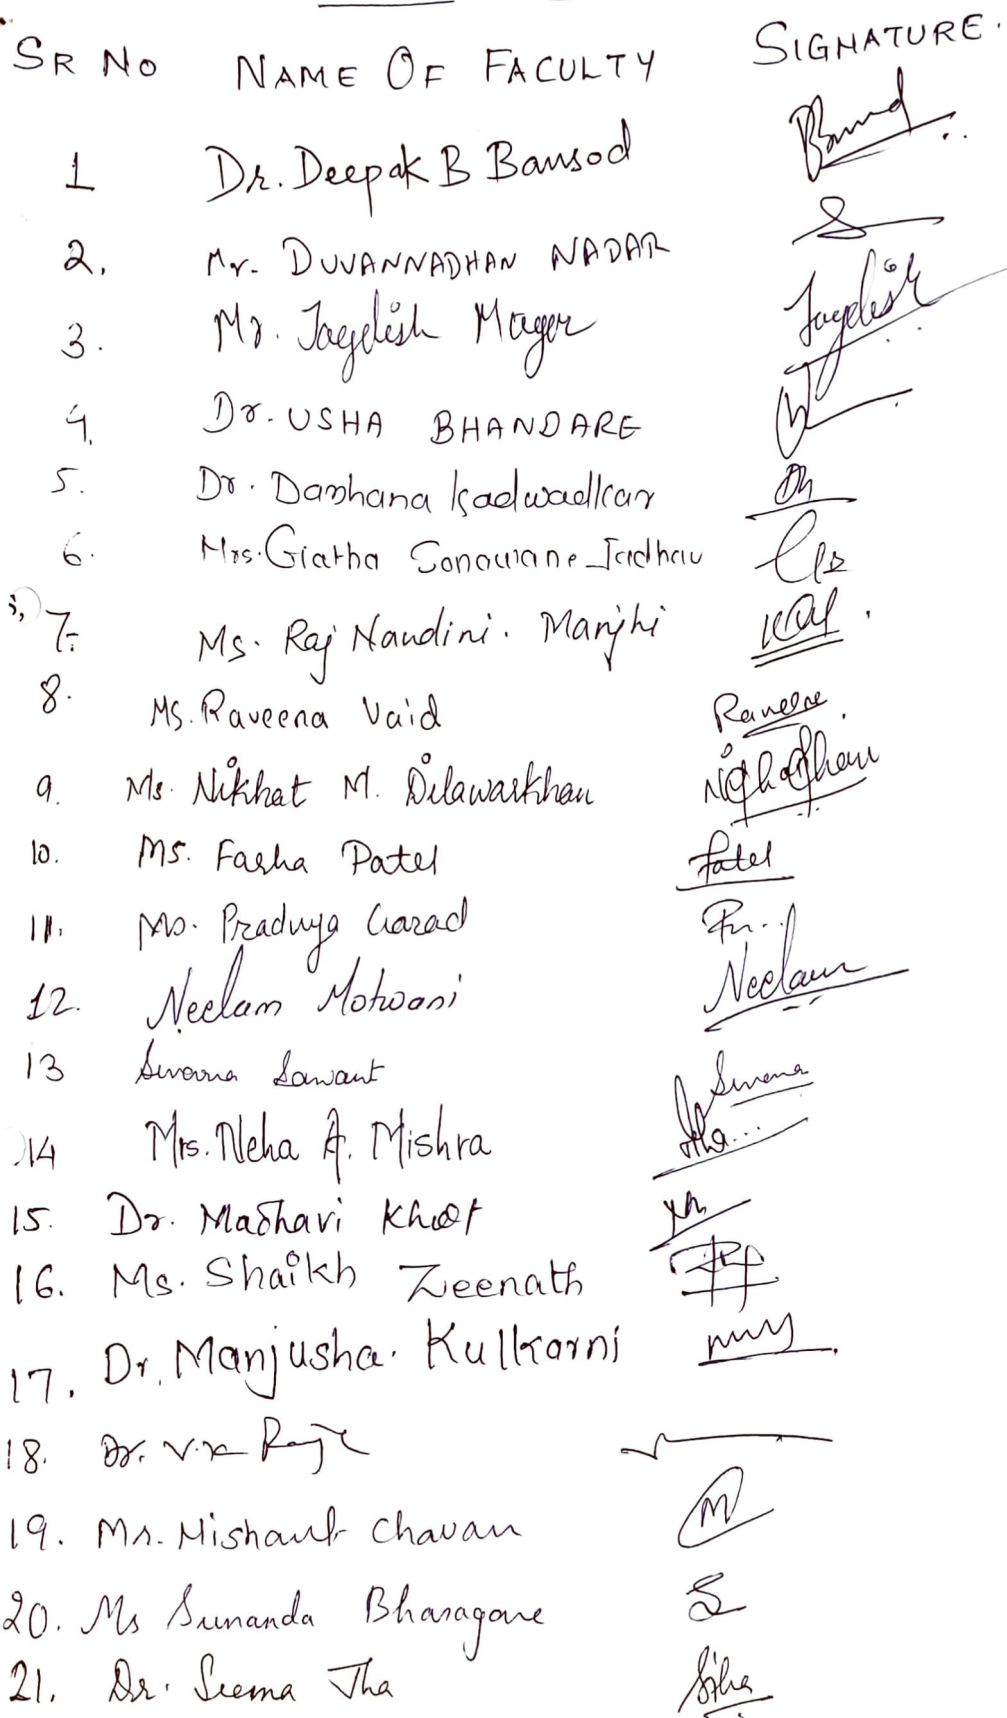 SR NO NAME OF FACULTY SIGNATURE.
1 Dr. Deepak B Bansod
2. Mr. DUVANNADHAN NADAR
3. Mr. Jagdish Mager Jagdish
4. Dr. USHA BHANDARE
5. Dr. Darshana Kadwadkar
6. Mrs. Giatha Sonawane-Jadhav
7. Ms. Raj Nandini. Manjhi
8. Ms. Raveena Vaid Raveena
9. Ms. Nikhat M. Dilawarkhan
10. Ms. Farha Patel Patel
11. Ms. Pradnya Garad
12. Neelam Motwani Neelam
13 Suvarna Sawant
14 Mrs. Neha A. Mishra
15. Dr. Madhavi Khot
16. Ms. Shaikh Zeenath
17. Dr. Manjusha. Kulkarni
18. Dr.
19. Mr. Nishant Chavan
20. Ms Sunanda Bharagane
21. Dr. Seema Jha